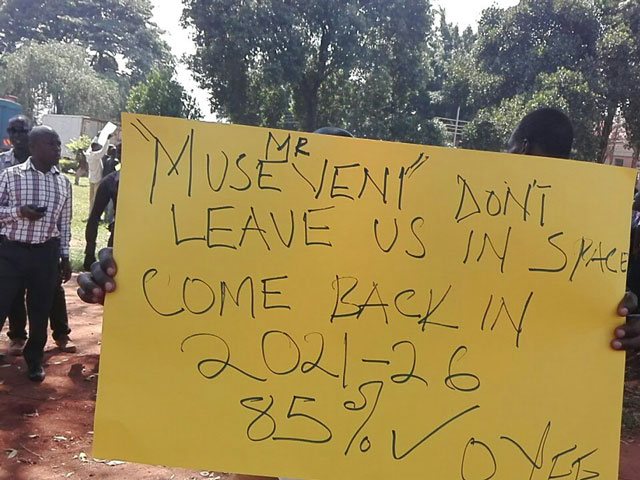 MR
"MUSEVENI" DON'T
LEAVE US IN SPACE
COME BACK IN
2021-26
85% ✓ OYEE